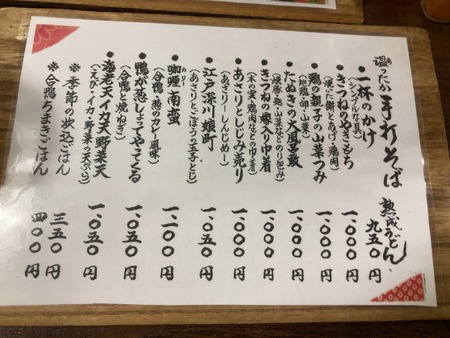 温ったか 手打そば 熟成うどん
・一杯のかけ 九五〇円
(シンプルな具)
・きつねのやきもち 一、〇〇〇円
(焼いた餅とあげ・鶏肉)
・鶏の親子の山菜つみ 一、〇〇〇円
(地鶏・卵・山菜)
・たぬきの大風呂敷 一、〇〇〇円
(焼豚・麩・山菜などのり包み)
・きつねの嫁入り巾着 一、〇〇〇円
(木の実・鶏肉などの巾着)
・あさりとしじみ売り 一、〇〇〇円
・江戸深川娘町 一、〇五〇円
(あさりとごぼうの玉子とじ)
・咖喱南蛮 一、一〇〇円
(合鴨と葱のカレー風味)
・鴨が葱しょってやってくる 一、〇五〇円
(合鴨と焼ねぎ)
・海老天イカ天野菜天 一、〇五〇円
(えび・イカ・野菜の天ぷら)
※季節の炊込ごはん 三五〇円
※合鴨ちまきごはん 四〇〇円